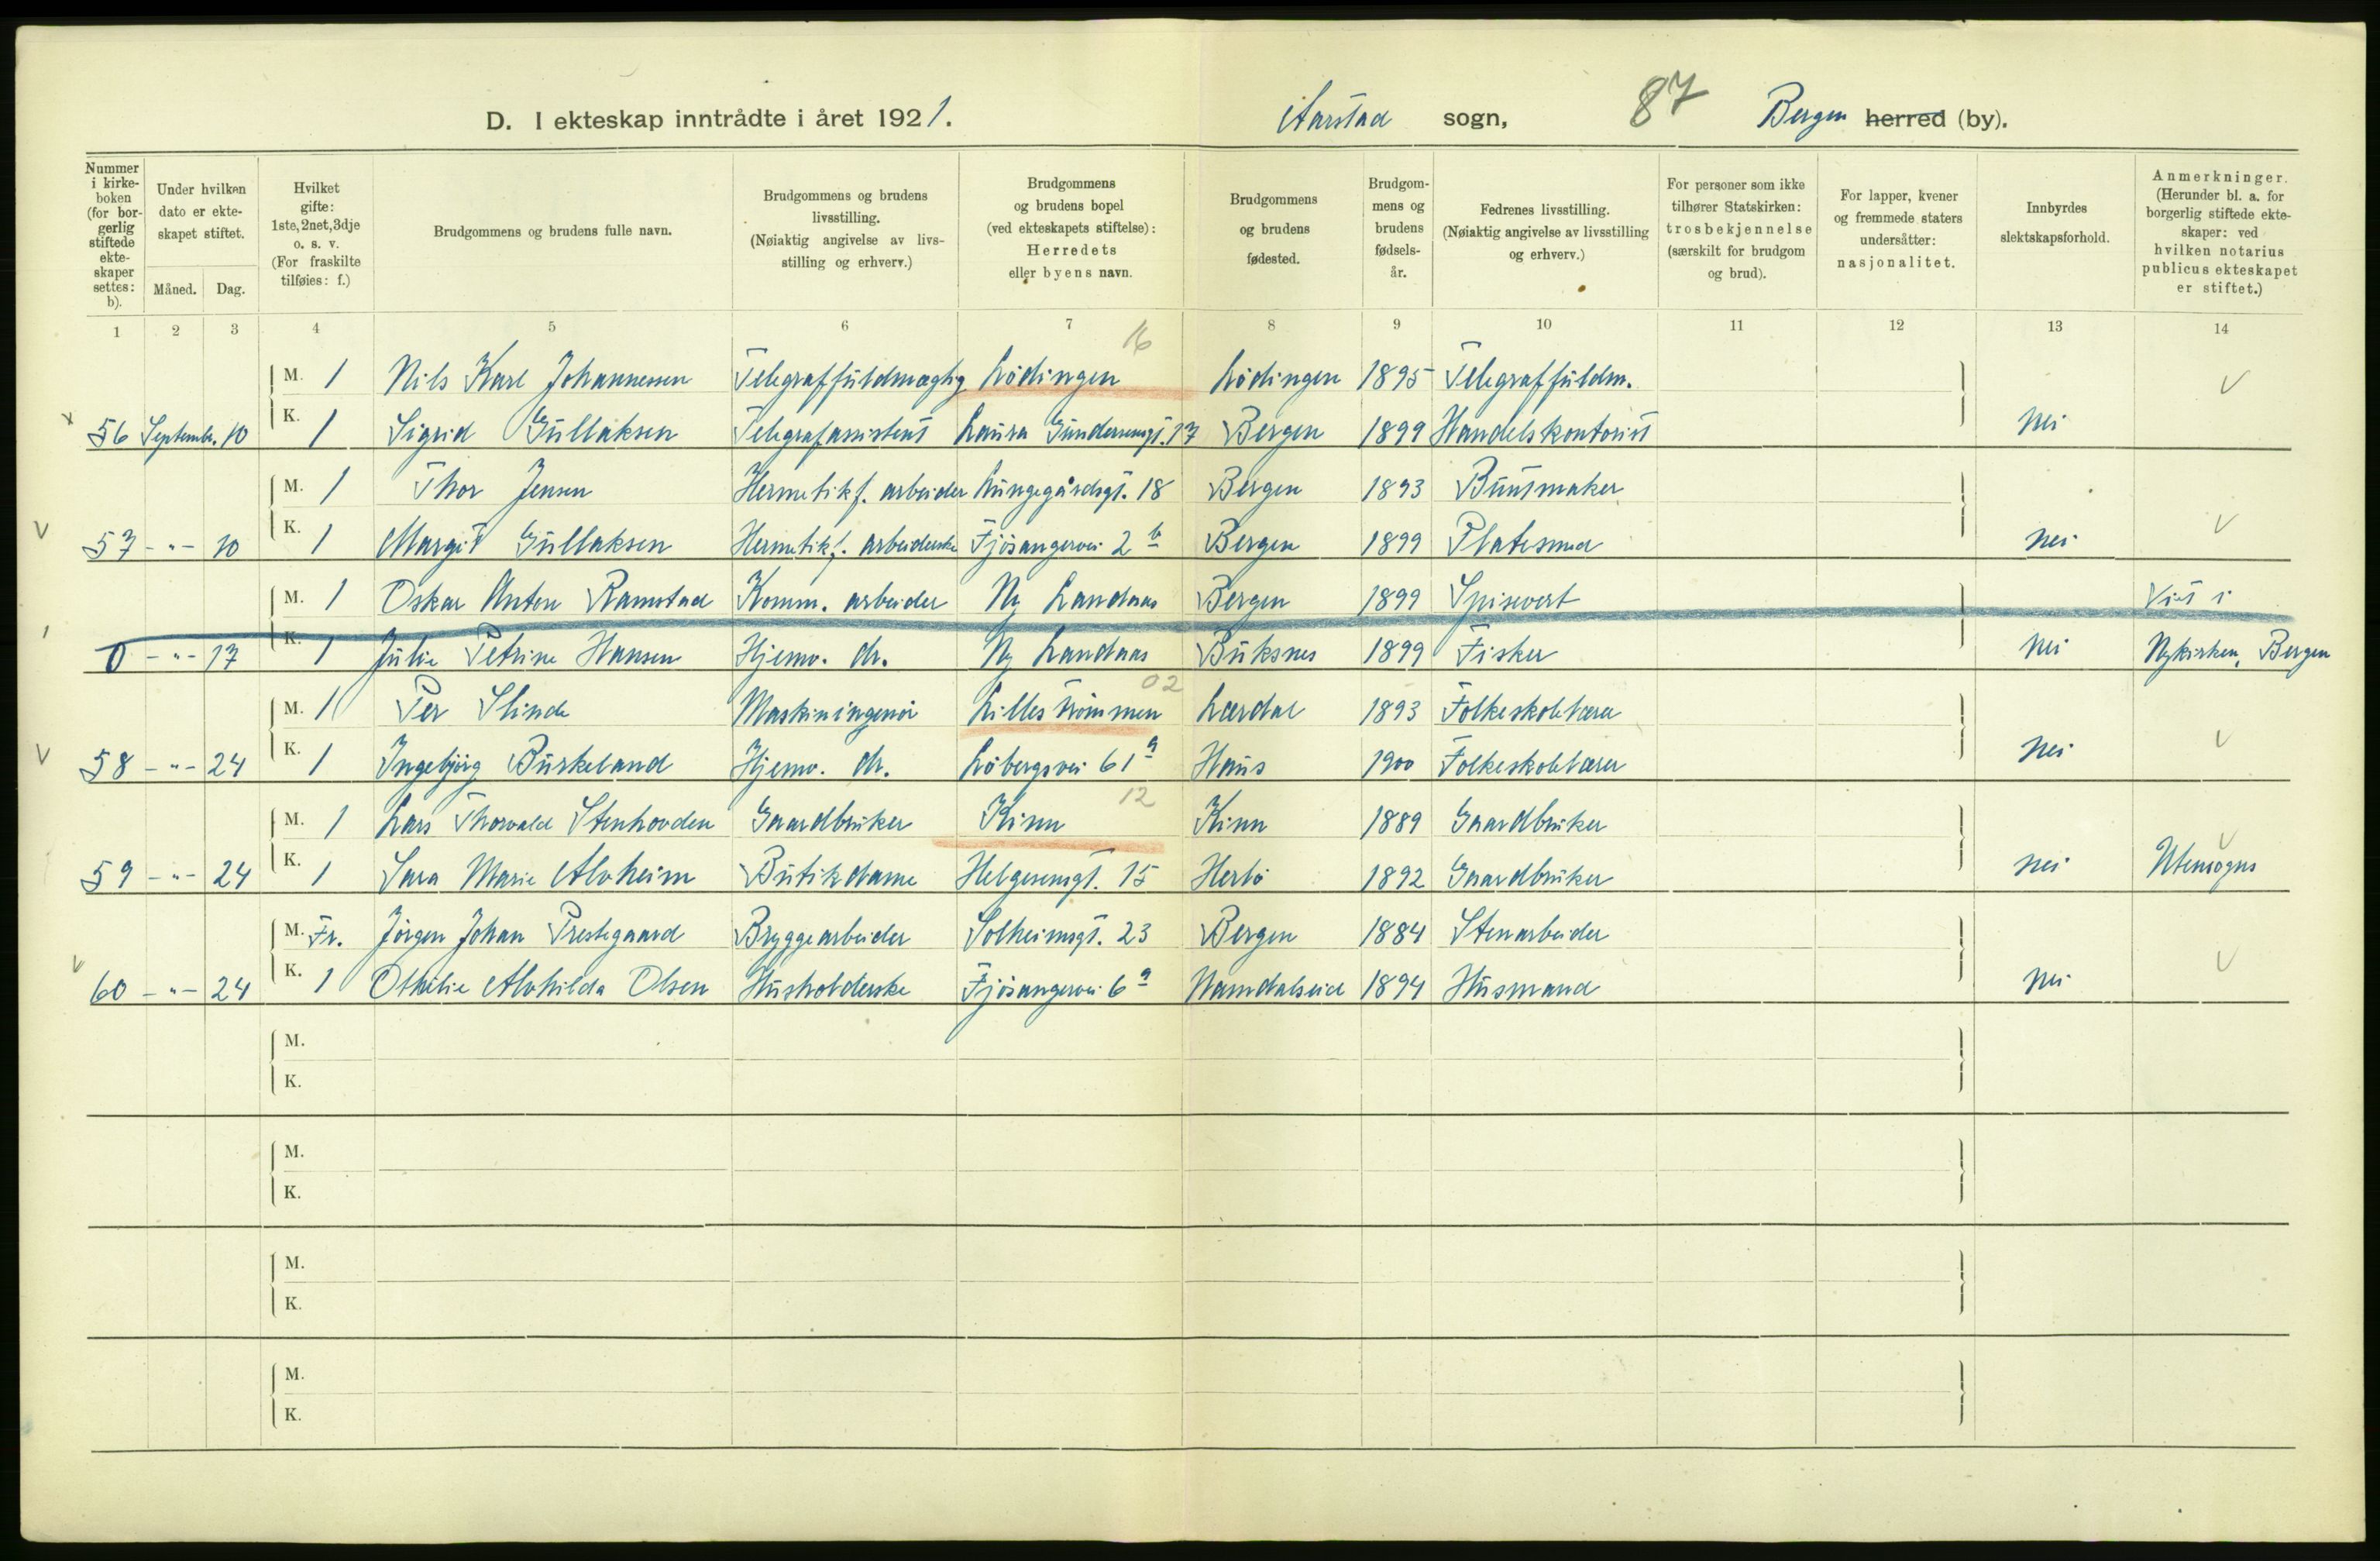 D. I ekteskap inntrådte i året 1921. Aarstad sogn, 87 Bergen herred (by).
Nummer i kirkeboken (for borgerlig stiftede ekteskaper settes: b).
Under hvilken dato er ekteskapet stiftet.
Måned. Dag.
Hvilket gifte: 1ste, 2net, 3dje o. s. v. (For fraskilte tilføies: f.)
Brudgommens og brudens fulle navn.
Brudgommens og brudens livsstilling. (Nøiaktig angivelse av livsstilling og erhverv.)
Brudgommens og brudens bopel (ved ekteskapets stiftelse): Herredets eller byens navn.
Brudgommens og brudens fødested.
Brudgommens og brudens fødselsår.
Fedrenes livsstilling. (Nøiaktig angivelse av livsstilling og erhverv.)
For personer som ikke tilhører Statskirken: trosbekjennelse (særskilt for brudgom og brud).
For lapper, kvener og fremmede staters undersåtter: nasjonalitet.
Innbyrdes slektskapsforhold.
Anmerkninger. (Herunder bl. a. for borgerlig stiftede ekteskaper: ved hvilken notarius publicus ekteskapet er stiftet.)
1 2 3 4 5 6 7 8 9 10 11 12 13 14
16
M. 1 Nils Karl Johannessen Telegraffuldmægtig Lödingen Lödingen 1895 Telegraffuldm.
56 Septembr. 10 K. 1 Sigrid Gullaksen Telegrafassistent Laura Gundersensgt. 17 Bergen 1899 Handelskontorist Nei
M. 1 Thor Jensen Hermetikf. arbeider Lungegårdsgt. 18 Bergen 1893 Buntmaker
57 -"- 10 K. 1 Margit Gullaksen Hermetikf. arbeiderske Fjösangervei 2 b Bergen 1899 Platesmed Nei
M. 1 Oskar Anton Ramstad Komm. arbeider Ny Landaas Bergen 1899 Spisevert Viet i
0 -"- 17 K. 1 Julie Petrine Hansen Hjemv. dr. Ny Landaas Buksnes 1899 Fisker Nei Nykirken, Bergen
02
M. 1 Per Slinde Maskiningeniör Lilleströmmen Lærdal 1893 Folkeskolelærer
58 -"- 24 K. 1 Ingebjörg Burkeland Hjemv. dr. Löbergsvei 61 a Haus 1900 Folkeskolelærer Nei
12
M. 1 Lars Thorvald Stenhovden Gaardbruker Kinn Kinn 1889 Gaardbruker
59 -"- 24 K. 1 Sara Marie Alvheim Butikdame Helgesensgt. 15 Herlö 1892 Gaardbruker Nei Utensogns
M. Fr. Jörgen Johan Prestegaard Bryggearbeider Solheimsgt. 23 Bergen 1884 Stenarbeider
60 -"- 24 K. 1 Othilie Alvhilda Olsen Husholderske Fjösangervei 6 a Namdalseid 1894 Husmand Nei
M.
K.
M.
K.
M.
K.
M.
K.